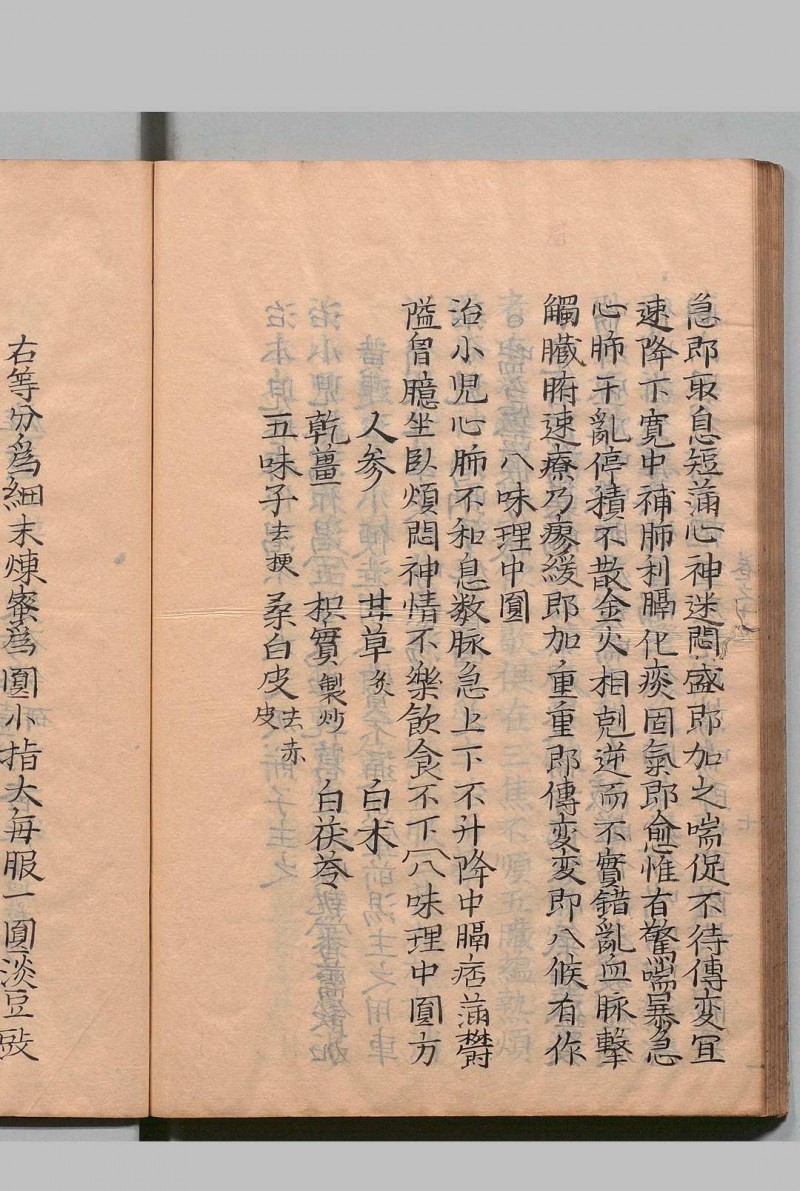 急即取息短滿心神迷悶盛即加之喘促不待傳變冝
速降下寛中補肺利膈化痰固氣即愈惟有驚喘暴急
心肺干亂停積不散金火相剋逆而不實錯亂血脉擊
觸臟腑速療乃瘳緩即加重重即傳變變即八候有作
八味理中圓
治小児心肺不和息数脉急上下不升降中膈痞滿欝
隘胷臆坐臥煩悶神情不樂飲食不下八味理中圓方
人参 甘草炙 白术
乾薑 枳實製炒 白茯苓
五味子去梗 桒白皮去赤皮
右等分爲細末煉蜜爲圓小指大每服一圓淡豆豉